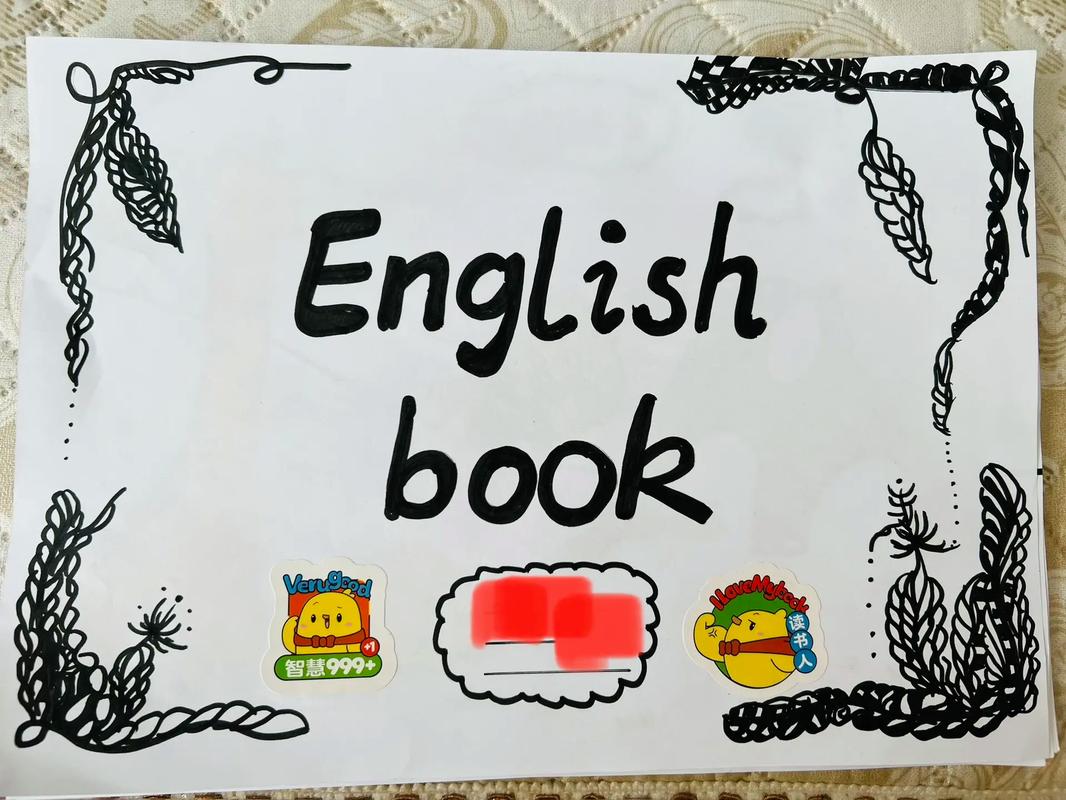 English
book
Very good
+1
智慧999+
I Love My book
读书人